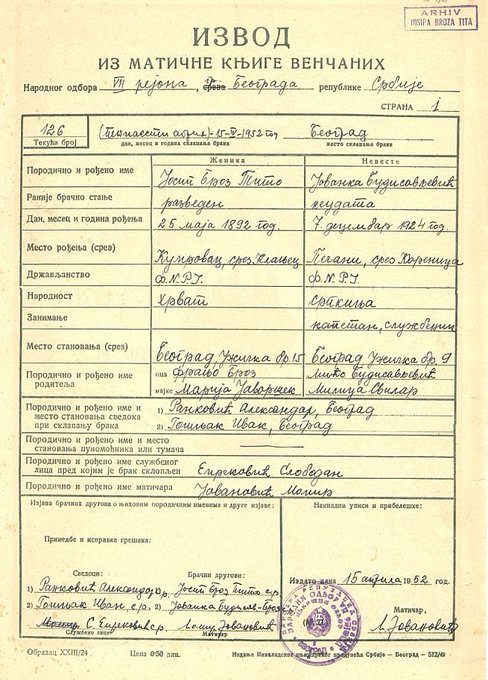 ARHIV
JOSIPA BROZA TITA
ИЗВОД
ИЗ МАТИЧНЕ КЊИГЕ ВЕНЧАНИХ
Народног одбора VII рејона, Београда републике Србије
СТРАНА 1
126 (петнаести 15-IV-1952 год Београд
Текући број дан, месец и година склапања брака место склапања брака
Женика Невесте
Породично и рођено име Јосип Броз Тито Јованка Будисављевић
Раније брачно стање разведен неудата
Дан, месец и година рођења 25 маја 1892 год. 7 децембар 1924 год.
Место рођења (срез) Кумровац, срез Клањец Печани, срез Кореница
Држављанство Ф.Н.Р.Ј. Ф.Н.Р.Ј.
Народност Хрват Српкиња
Занимање капетан, службеник
Место становања (срез) Београд, Ужичка бр. 15 Београд Ужичка бр. 9
Породично и рођено име родитеља
оца Фрањо Броз Мићо Будисављевић
мајке Марија Јаворшек Милица Свилар
Породично и рођено име и
место становања сведока
при склапању брака
1) Ранковић Александар, Београд
2) Гошњак Иван, Београд
Породично и рођено име и место
становања пуномоћника или тумача
Породично и рођено име службеног
лица пред којим је брак склопљен Слободан
Породично и рођено име матичара Јовановић
Изјава брачних другова о њиховим породичним именима и друге изјаве:
Накнадни уписи и прибелешке:
Примедбе и исправке грешака:
Сведоци: Брачни другови:
1) Ранковић Александар с.р. 1) Јосип Броз Тито с.р.
2) Гошњак Иван с.р. 2) Јованка
Службено лице Матичар
Издато дана 15 априла 1952 год.
Матичар,
Јовановић
Образац XXIII/24 Цена 0·50 дин. Београд – 512/49